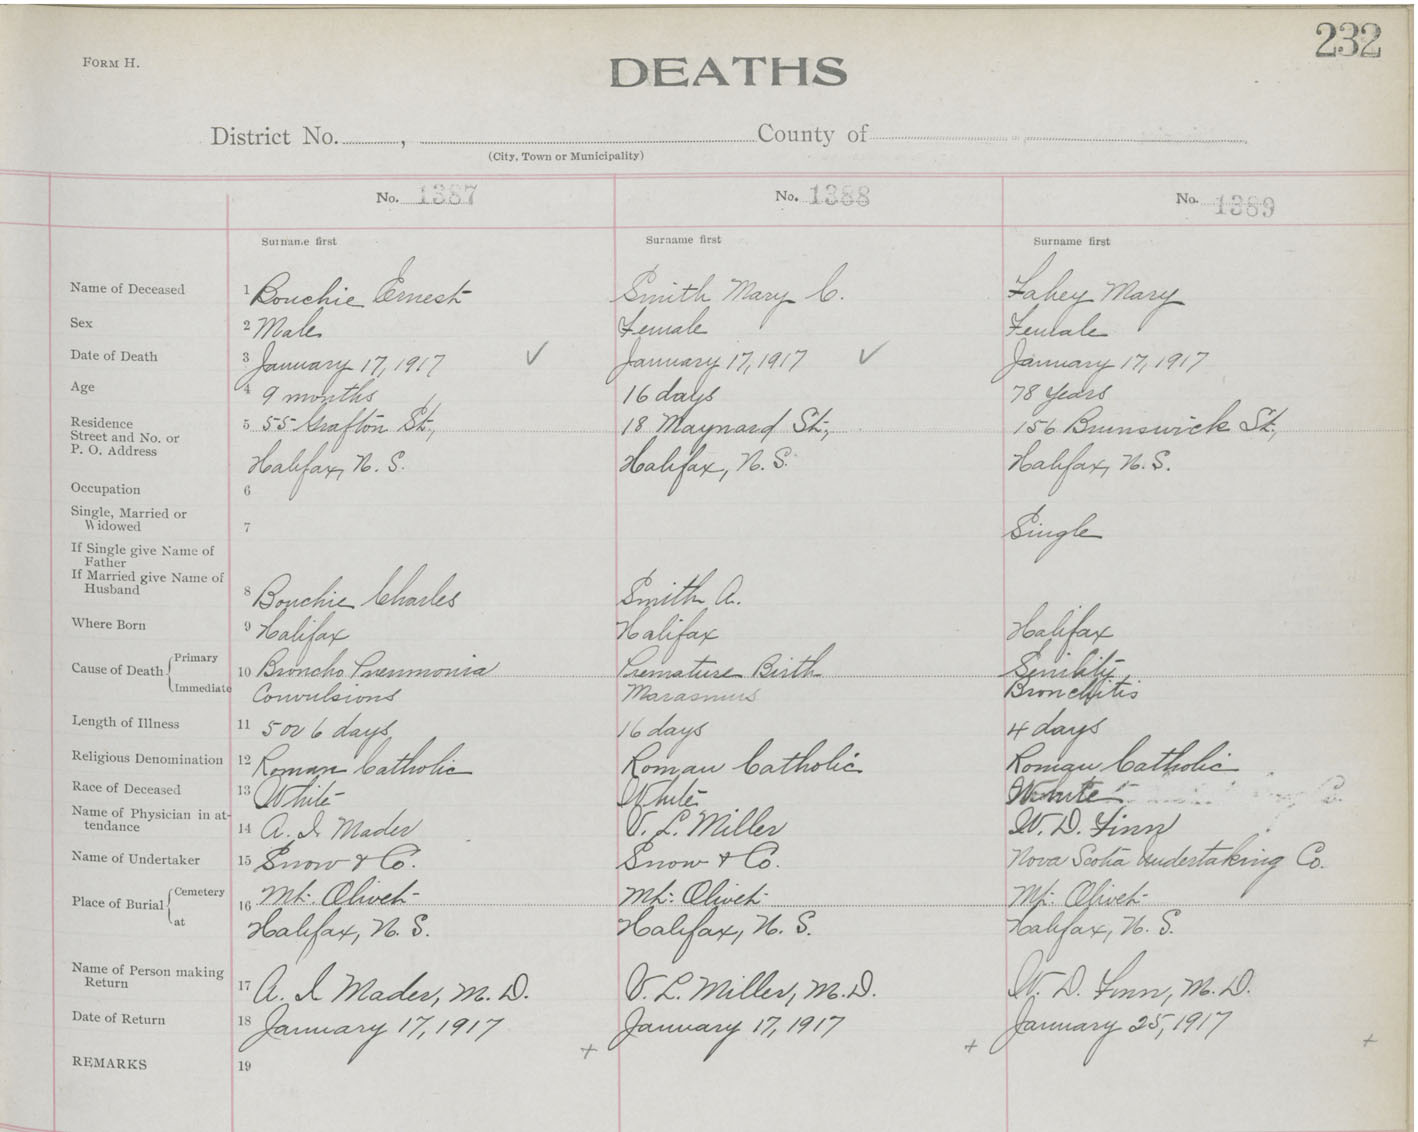 232
FORM H.
DEATHS
District No. , County of
(City, Town or Municipality)
No. 1387 No. 1388 No. 1389
Surname first Surname first Surname first
Name of Deceased 1 Bouchie Ernest Smith Mary C. Fahey Mary
Sex 2 Male Female Female
Date of Death 3 January 17, 1917 ✓ January 17, 1917 ✓ January 17, 1917
Age 4 9 months 16 days 78 years
Residence
Street and No. or 5 55 Grafton St., 18 Maynard St., 156 Brunswick St.,
P. O. Address Halifax, N. S. Halifax, N. S. Halifax, N. S.
Occupation 6
Single, Married or
Widowed 7 Single
If Single give Name of
Father
If Married give Name of
Husband 8 Bouchie Charles Smith A.
Where Born 9 Halifax Halifax Halifax
Cause of Death Primary 10 Broncho Pneumonia Premature Birth Senility
Immediate Convulsions Marasmus Bronchitis
Length of Illness 11 5 or 6 days 16 days 4 days
Religious Denomination 12 Roman Catholic Roman Catholic Roman Catholic
Race of Deceased 13 White White White
Name of Physician in at-
tendance 14 A. I. Mader V. L. Miller W. D. Finn
Name of Undertaker 15 Snow & Co. Snow & Co. Nova Scotia Undertaking Co.
Place of Burial Cemetery 16 Mt. Olivet Mt. Olivet Mt. Olivet
at Halifax, N. S. Halifax, N. S. Halifax, N. S.
Name of Person making
Return 17 A. I. Mader, M. D. V. L. Miller, M. D. W. D. Finn, M. D.
Date of Return 18 January 17, 1917 January 17, 1917 January 25, 1917
+ + +
REMARKS 19